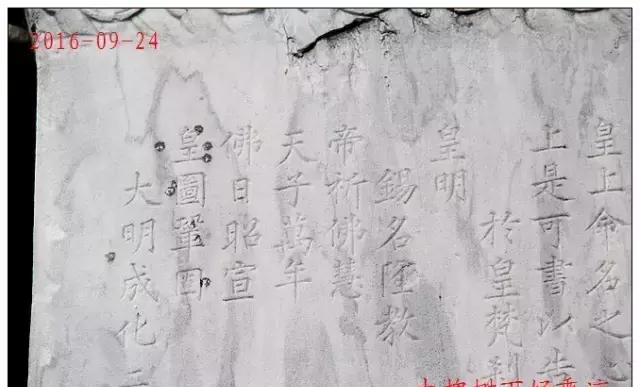 2016-09-24
皇上命名之
上是可書以告
於皇梵刹
皇明
錫名隆教
帝祈佛慧
天子萬年
佛日昭宣
皇圖鞏固
大明成化二